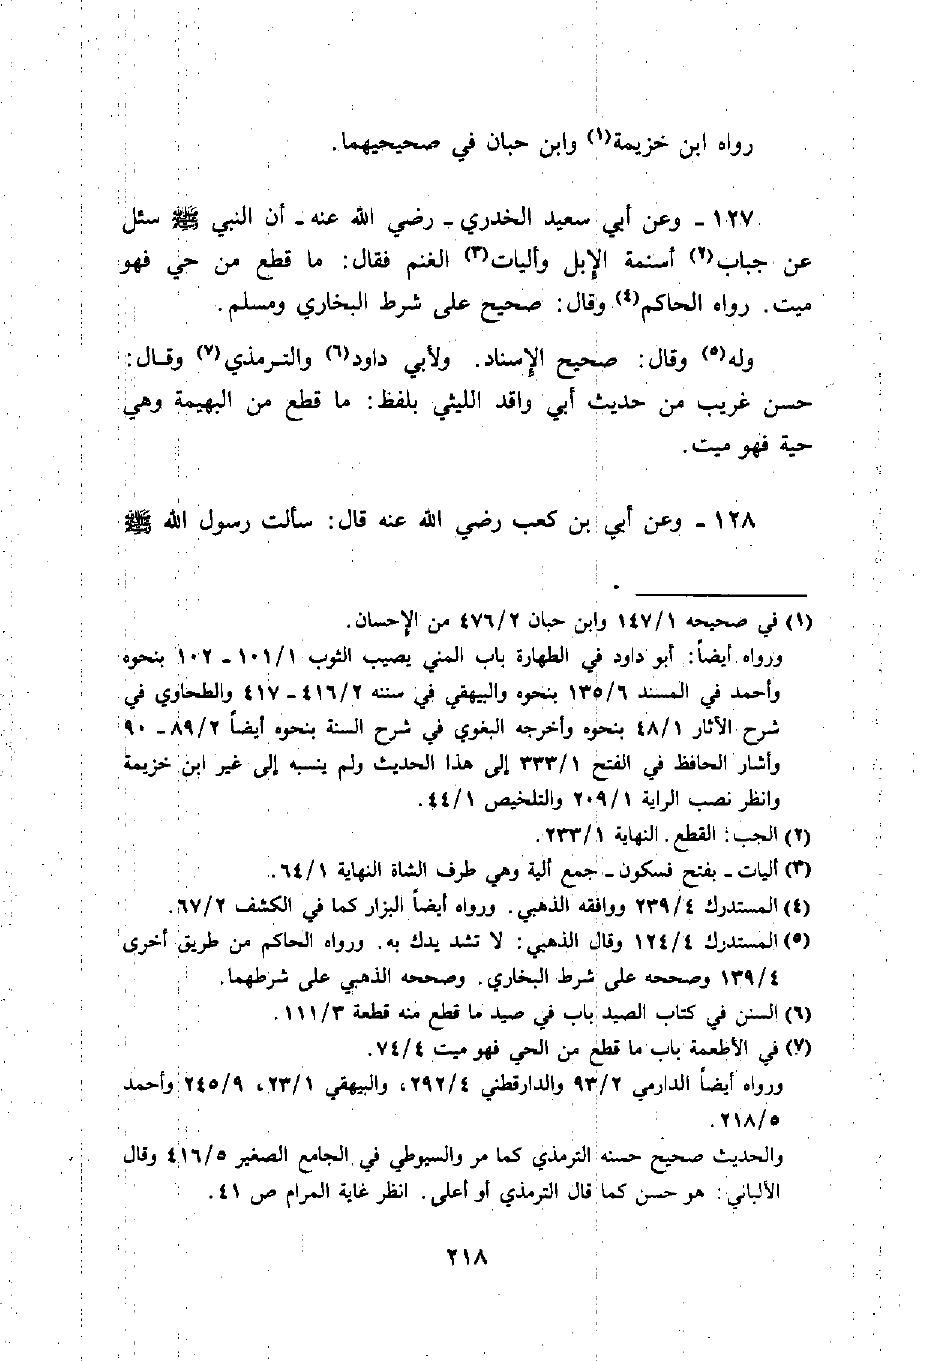 رواه ابن خزيمة(١) وابن حبان في صحيحيهما.
١٢٧ - وعن أبي سعيد الخدري - رضي الله عنه - أن النبي ﷺ سئل
عن جباب(٢) أسنمة الإبل وأليات(٣) الغنم فقال: ما قطع من حي فهو
ميت. رواه الحاكم(٤) وقال: صحيح على شرط البخاري ومسلم.
وله(٥) وقال: صحيح الإسناد. ولأبي داود(٦) والترمذي(٧) وقال:
حسن غريب من حديث أبي واقد الليثي بلفظ: ما قطع من البهيمة وهي
حية فهو ميت.
١٢٨ - وعن أبي بن كعب رضي الله عنه قال: سألت رسول الله ﷺ
(١) في صحيحه ١٤٧/١ وابن حبان ٤٧٦/٢ من الإحسان.
ورواه أيضاً: أبو داود في الطهارة باب المني يصيب الثوب ١٠١/١ - ١٠٢ بنحوه
وأحمد في المسند ١٣٥/٦ بنحوه والبيهقي في سننه ٤١٦/٢ - ٤١٧ والطحاوي في
شرح الآثار ٤٨/١ بنحوه وأخرجه البغوي في شرح السنة بنحوه أيضاً ٨٩/٢ - ٩٠
وأشار الحافظ في الفتح ٣٣٣/١ إلى هذا الحديث ولم ينسبه إلى غير ابن خزيمة
وانظر نصب الراية ٢٠٩/١ والتلخيص ٤٤/١.
(٢) الجب: القطع. النهاية ٢٣٣/١.
(٣) أليات - بفتح فسكون - جمع ألية وهي طرف الشاة النهاية ٦٤/١.
(٤) المستدرك ٢٣٩/٤ ووافقه الذهبي. ورواه أيضاً البزار كما في الكشف ٦٧/٢.
(٥) المستدرك ١٢٤/٤ وقال الذهبي: لا تشد يدك به. ورواه الحاكم من طريق أخرى
١٣٩/٤ وصححه على شرط البخاري. وصححه الذهبي على شرطهما.
(٦) السنن في كتاب الصيد باب في صيد ما قطع منه قطعة ١١١/٣.
(٧) في الأطعمة باب ما قطع من الحي فهو ميت ٧٤/٤.
ورواه أيضاً الدارمي ٩٣/٢ والدارقطني ٢٩٢/٤، والبيهقي ٢٣/١، ٢٤٥/٩ وأحمد
٢١٨/٥.
والحديث صحيح حسنه الترمذي كما مر والسيوطي في الجامع الصغير ٤١٦/٥ وقال
الألباني: هو حسن كما قال الترمذي أو أعلى. انظر غاية المرام ص ٤١.
٢١٨